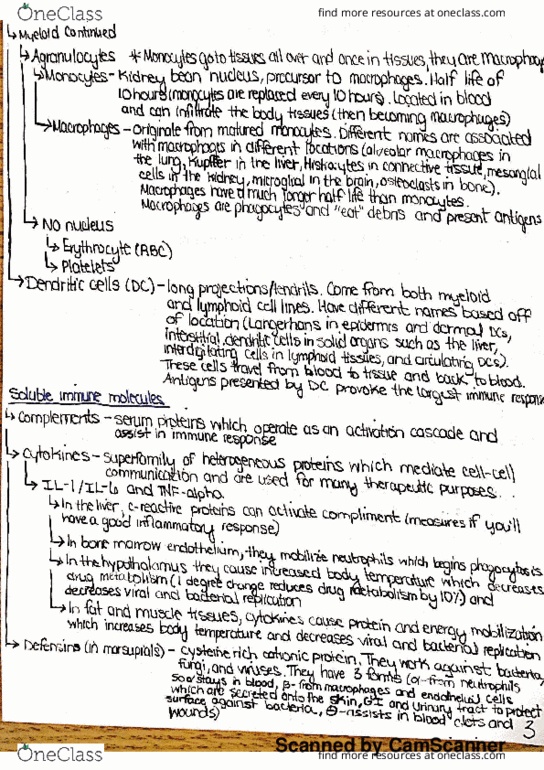 OneClass
find more resources at oneclass.com
↳ Myeloid Continued
↳ Agranulocytes * Monocytes go to tissues all over and once in tissues, they are macrophag
↳ Monocytes - Kidney bean nucleus, precursor to macrophages. Half life of
10 hours (monocytes are replaced every 10 hours). Located in blood
and can infiltrate the body tissues (then becoming macrophages)
↳ Macrophages - originate from matured monocytes. Different names are associated
with macrophages in different locations (alveolar macrophages in
the lung, Kupffer in the liver, Histiocytes in connective tissue, mesangial
cells in the kidney, microglial in the brain, osteoclasts in bone).
Macrophages have a much longer half life than monocytes.
Macrophages are phagocytes and "eat" debris and present antigens
↳ No nucleus
↳ Erythrocyte (RBC)
↳ Platelets
↳ Dendritic cells (DC) - long projections/tendrils. Come from both myeloid
and lymphoid cell lines. Have different names based off
of location (Langerhans in epidermis and dermal DCs,
interstitial dendritic cells in solid organs such as the liver,
interdigitating cells in lymphoid tissues, and circulating DCs).
These cells travel from blood to tissue and back to blood.
Antigens presented by DC provoke the largest immune respons
Soluble immune molecules
↳ Complements - serum proteins which operate as an activation cascade and
assist in immune response
↳ Cytokines - superfamily of heterogeneous proteins which mediate cell-cell
communication and are used for many therapeutic purposes.
↳ IL-1/IL-6 and TNF-alpha.
↳ In the liver, c-reactive proteins can activate compliment (measures if you'll
have a good inflammatory response)
↳ In bone marrow endothelium, they mobilize neutrophils which begins phagocytosis
↳ In the hypothalamus they cause increased body temperature which decreases
drug metabolism (1 degree change reduces drug metabolism by 10%) and
decreases viral and bacterial replication
↳ In fat and muscle tissues, cytokines cause protein and energy mobilization
which increases body temperature and decreases viral and bacterial replication
↳ Defensins (in marsupials) - cysteine rich cationic protein. They work against bacteria,
fungi, and viruses. They have 3 forms (α-from neutrophils
so stays in blood, β-from macrophages and endothelial cells
which are secreted onto the skin, GI and urinary tract to protect
surface against bacteria, θ-assists in blood clots and
wounds)
3
Scanned by CamScanner
OneClass
find more resources at oneclass.com